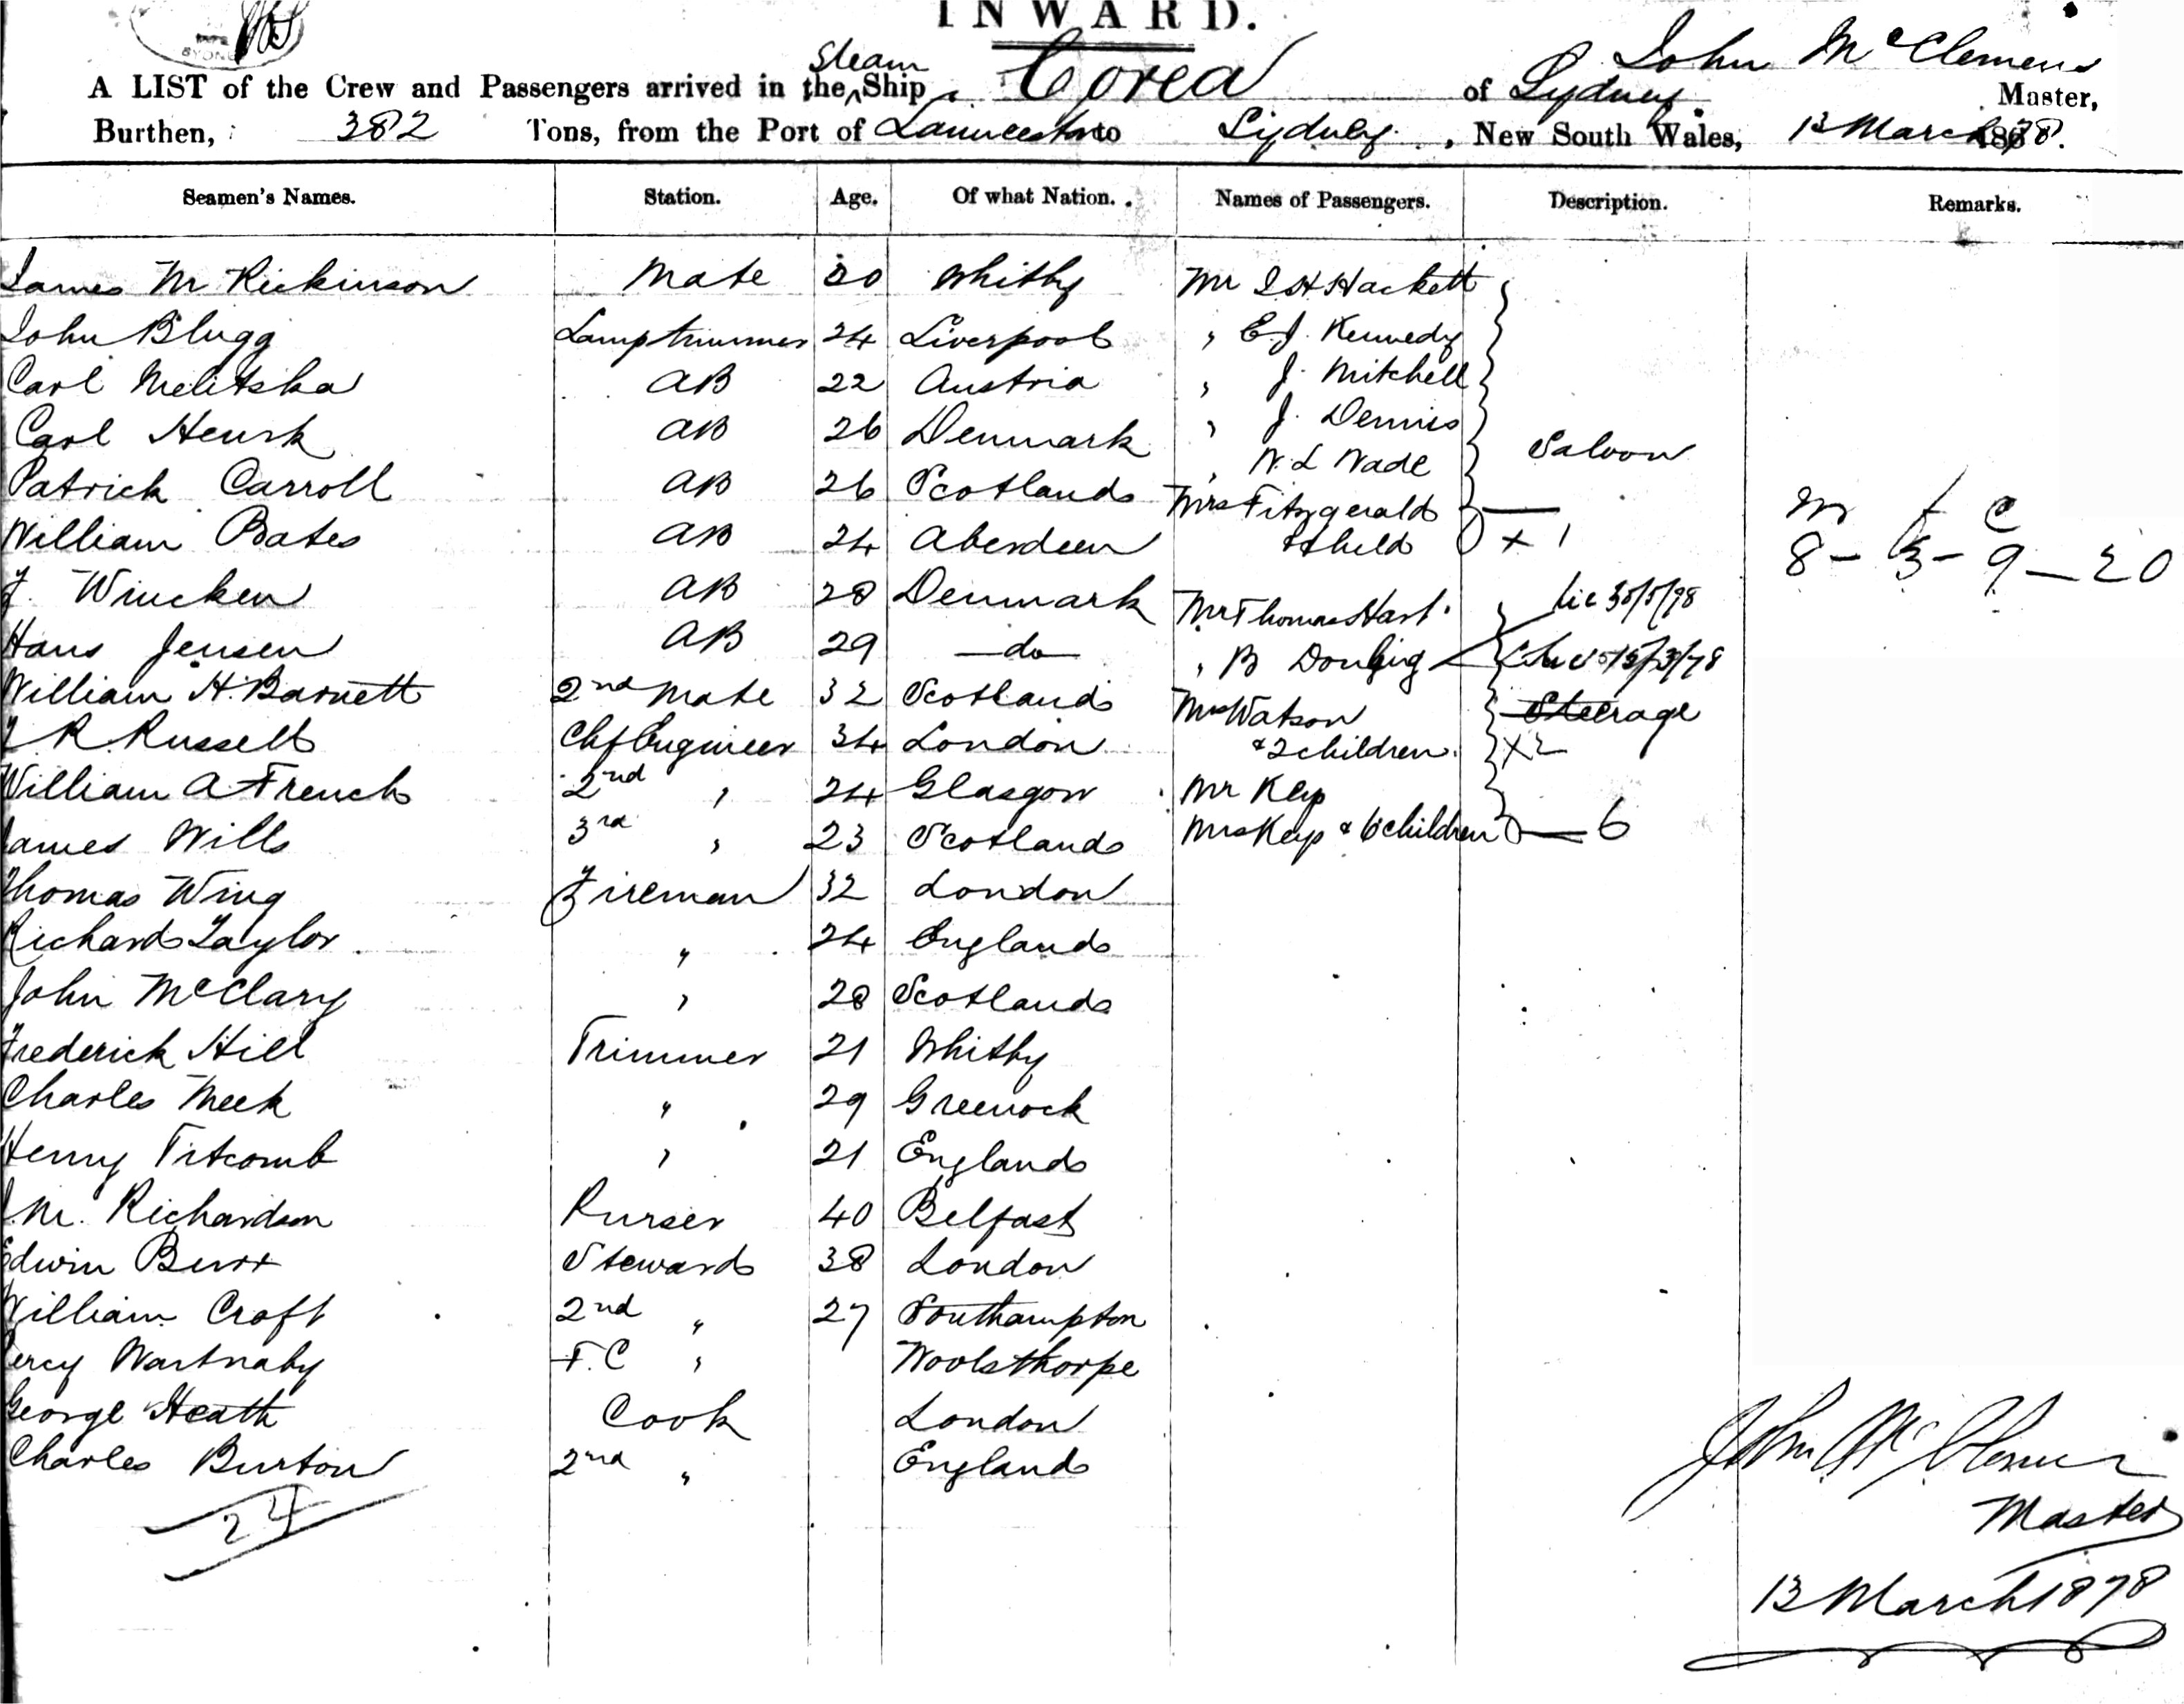 INWARD.
Steam John McClemens
A LIST of the Crew and Passengers arrived in the Ship Corea of Sydney Master,
Burthen, 382 Tons, from the Port of Launceston to Sydney, New South Wales, 13 March 1878.
Seamen's Names. Station. Age. Of what Nation. Names of Passengers. Description. Remarks.
James M Rickinson Mate 30 Whitby Mr J H Hackett
John Blugg Lamptrimmer 24 Liverpool " E.J. Kennedy
Carl Melitska AB 22 Austria " J. Mitchell
Carl Henrk AB 26 Denmark " J. Dennis
" W. L Wade Saloon
Patrick Carroll AB 26 Scotland Mrs Fitzgerald
M f C
William Bates AB 24 Aberdeen & child + 1
8 - 3 - 9 - 20
J. Wincken AB 28 Denmark Mr Thomas Hart
Hans Jensen AB 29 -do- " B
William H. Barnett 2nd Mate 32 Scotland Mrs Watson Steerage
J R Russell Chf Engineer 34 London & 2 children. x 2
William A French 2nd " 24 Glasgow Mr Kep
James Wills 3rd " 23 Scotland Mrs Kep & 6 children 6
Thomas Wing Fireman 32 London
Richard Taylor " 24 England
John McClary " 28 Scotland
Frederick Hill Trimmer 21 Whitby
Charles Meek " 29 Greenock
Henry Titcomb " 21 England
J.M. Richardson Purser 40 Belfast
Edwin Burr Steward 38 London
William Croft 2nd " 27 Southampton
Percy Wartnaby F.C " Woolsthorpe
George Heath Cook London
Charles Burton 2nd " England
24
John McClemens
Master
13 March 1878